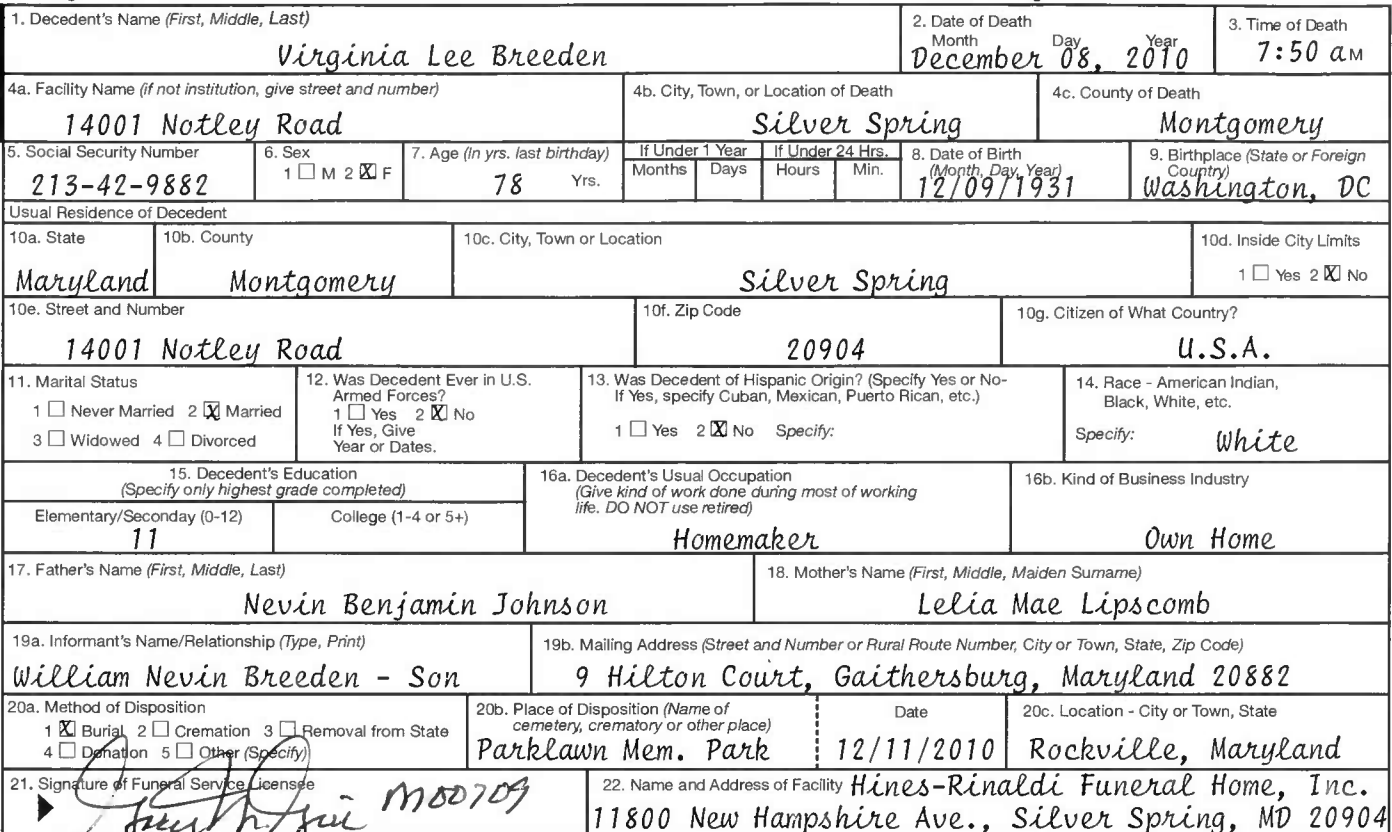 1. Decedent's Name (First, Middle, Last)
Virginia Lee Breeden
2. Date of Death
Month Day Year
December 08, 2010
3. Time of Death
7:50 aM
4a. Facility Name (if not institution, give street and number)
14001 Notley Road
4b. City, Town, or Location of Death
Silver Spring
4c. County of Death
Montgomery
5. Social Security Number
213-42-9882
6. Sex
1 ☐ M 2 ☒ F
7. Age (In yrs. last birthday)
78 Yrs.
If Under 1 Year
Months Days
If Under 24 Hrs.
Hours Min.
8. Date of Birth
(Month, Day, Year)
12/09/1931
9. Birthplace (State or Foreign
Country)
Washington, DC
Usual Residence of Decedent
10a. State
Maryland
10b. County
Montgomery
10c. City, Town or Location
Silver Spring
10d. Inside City Limits
1 ☐ Yes 2 ☒ No
10e. Street and Number
14001 Notley Road
10f. Zip Code
20904
10g. Citizen of What Country?
U.S.A.
11. Marital Status
1 ☐ Never Married 2 ☒ Married
3 ☐ Widowed 4 ☐ Divorced
12. Was Decedent Ever in U.S.
Armed Forces?
1 ☐ Yes 2 ☒ No
If Yes, Give
Year or Dates.
13. Was Decedent of Hispanic Origin? (Specify Yes or No-
If Yes, specify Cuban, Mexican, Puerto Rican, etc.)
1 ☐ Yes 2 ☒ No Specify:
14. Race - American Indian,
Black, White, etc.
Specify: White
15. Decedent's Education
(Specify only highest grade completed)
Elementary/Seconday (0-12)
11
College (1-4 or 5+)
16a. Decedent's Usual Occupation
(Give kind of work done during most of working
life. DO NOT use retired)
Homemaker
16b. Kind of Business Industry
Own Home
17. Father's Name (First, Middle, Last)
Nevin Benjamin Johnson
18. Mother's Name (First, Middle, Maiden Surname)
Lelia Mae Lipscomb
19a. Informant's Name/Relationship (Type, Print)
William Nevin Breeden - Son
19b. Mailing Address (Street and Number or Rural Route Number, City or Town, State, Zip Code)
9 Hilton Court, Gaithersburg, Maryland 20882
20a. Method of Disposition
1 ☒ Burial 2 ☐ Cremation 3 ☐ Removal from State
4 ☐ Donation 5 ☐ Other (Specify)
20b. Place of Disposition (Name of
cemetery, crematory or other place)
Parklawn Mem. Park
Date
12/11/2010
20c. Location - City or Town, State
Rockville, Maryland
21. Signature of Funeral Service Licensee
M00709
22. Name and Address of Facility Hines-Rinaldi Funeral Home, Inc.
11800 New Hampshire Ave., Silver Spring, MD 20904